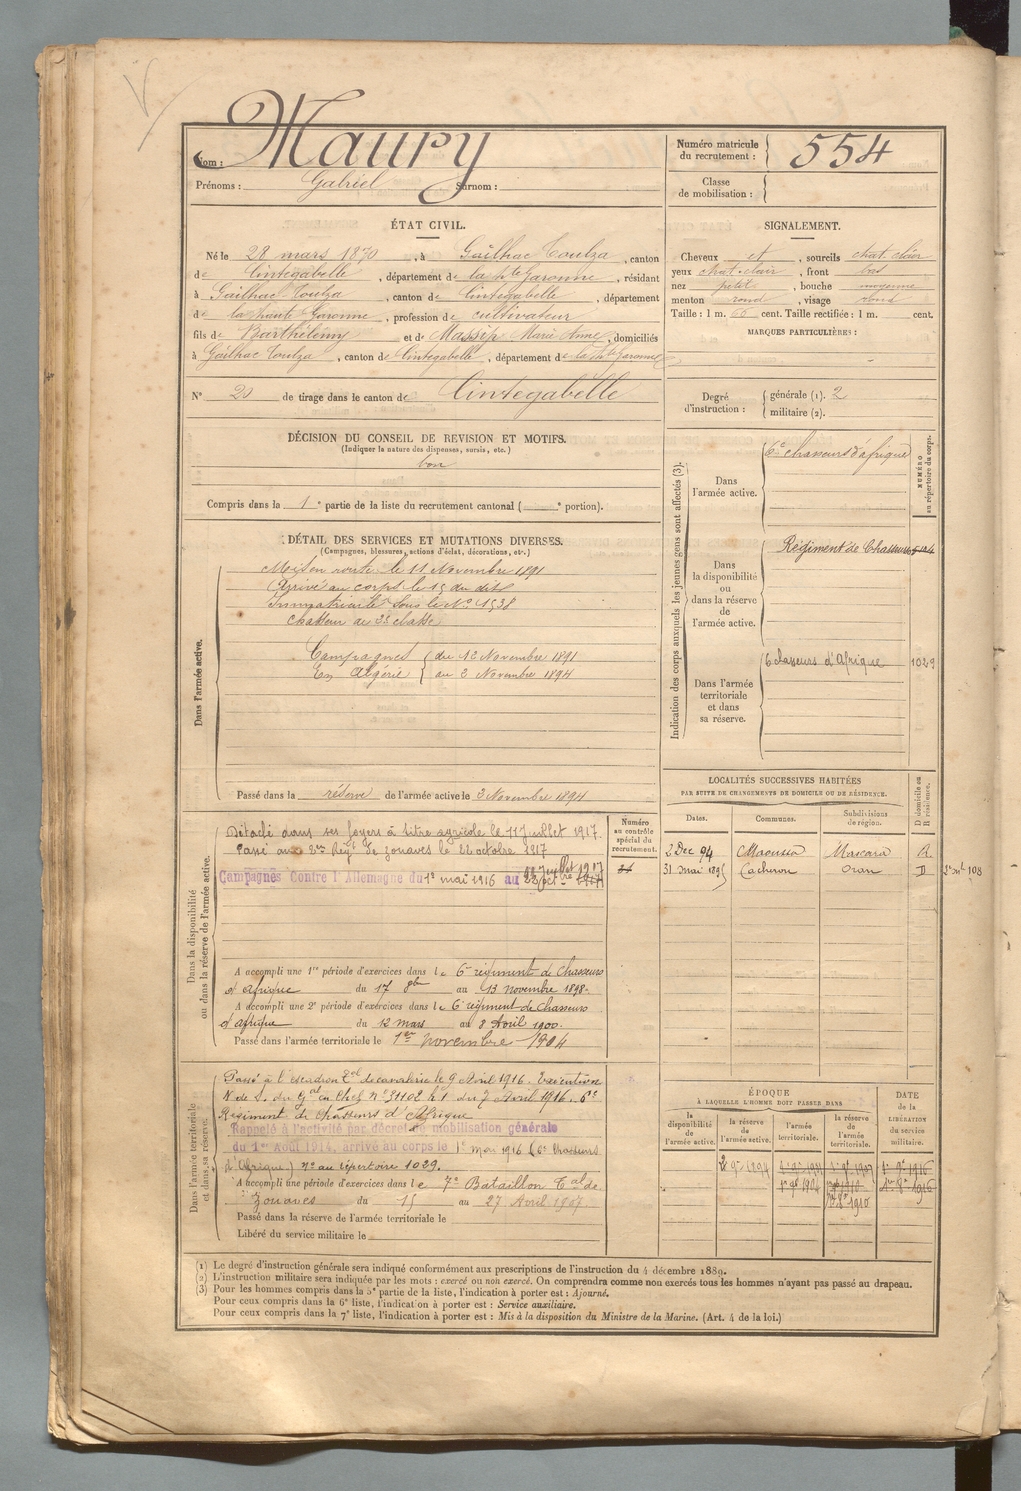 Nom : Maury
Prénoms : Gabriel Surnom :
Numéro matricule du recrutement : 554
Classe de mobilisation :
ÉTAT CIVIL.
Né le 28 mars 1870, à Gailhac Toulza, canton
de Cintegabelle, département de la Hte Garonne, résidant
à Gailhac Toulza, canton de Cintegabelle, département
de la Haute Garonne, profession de cultivateur
fils de Barthélémy et de Massip Marie Anne, domiciliés
à Gailhac Toulza, canton de Cintegabelle, département de la Hte Garonne
N° 20 de tirage dans le canton de Cintegabelle
SIGNALEMENT.
Cheveux et, sourcils chat clair
yeux chat-clair, front bas
nez petit, bouche moyenne
menton rond, visage rond
Taille : 1 m. 60 cent. Taille rectifiée : 1 m. cent.
MARQUES PARTICULIÈRES :
Degré d'instruction : générale (1). 2
militaire (2).
DÉCISION DU CONSEIL DE REVISION ET MOTIFS.
(Indiquer la nature des dispenses, sursis, etc.)
bon
Compris dans la 1e partie de la liste du recrutement cantonal ( e portion).
Indication des corps auxquels les jeunes gens sont affectés (3).
NUMÉRO au répertoire du corps.
Dans l'armée active.
6e chasseurs d'afrique
Dans la disponibilité ou dans la réserve de l'armée active.
Régiment de Chasseurs
Dans l'armée territoriale et dans sa réserve.
6 chasseurs d'Afrique 1029
DÉTAIL DES SERVICES ET MUTATIONS DIVERSES.
(Campagnes, blessures, actions d'éclat, décorations, etc.)
Dans l'armée active.
Mis en route le 11 Novembre 1891
Arrivé au corps le 15 du dit
Immatriculé sous le No 1538
chasseur de 2e classe
Campagnes du 12 Novembre 1891
En Algérie au 3 Novembre 1894
Passé dans la réserve de l'armée active le 3 Novembre 1894
LOCALITÉS SUCCESSIVES HABITÉES
PAR SUITE DE CHANGEMENTS DE DOMICILE OU DE RÉSIDENCE.
D domicile ou R résidence.
Dates. Communes. Subdivisions de région.
2 Dec 94 Maoussa Mascara R.
31 mai 1895 Cacherou Oran D
Numéro au contrôle spécial du recrutement.
Dans la disponibilité ou dans la réserve de l'armée active.
Détaché dans ses foyers à titre agricole le 11 Juillet 1917.
Passé au 2me Régt de Zouaves le 22 octobre 1917
Campagnes Contre l'Allemagne du 1er mai 1916 au
A accompli une 1re période d'exercices dans le 6e régiment de Chasseurs
d'afrique du 17 8bre au 13 novembre 1898.
A accompli une 2e période d'exercices dans le 6e régiment de Chasseurs
d'afrique du 12 mars au 8 Avril 1900.
Passé dans l'armée territoriale le 1er novembre 1904
Dans l'armée territoriale et dans sa réserve.
Passé à l'escadron Tal de cavalerie le 9 Avril 1916. Exécution
N de S. du Gal en Chef n° 31102 du 7 Avril 1916. 6e
Régiment de Chasseurs d'Afrique
Rappelé à l'activité par décret de mobilisation générale
du 1er Août 1914, arrivé au corps le 1er mai 1916 (6e Chasseurs
d'Afrique) n° au répertoire 1029.
A accompli une période d'exercices dans le 7e Bataillon Tal de
Zouaves du 15 au 27 Avril 1907.
Passé dans la réserve de l'armée territoriale le
Libéré du service militaire le
ÉPOQUE
À LAQUELLE L'HOMME DOIT PASSER DANS
la disponibilité de l'armée active.
la réserve de l'armée active.
l'armée territoriale.
la réserve de l'armée territoriale.
DATE de la LIBÉRATION du service militaire.
(1) Le degré d'instruction générale sera indiqué conformément aux prescriptions de l'instruction du 4 décembre 1889.
(2) L'instruction militaire sera indiquée par les mots : exercé ou non exercé. On comprendra comme non exercés tous les hommes n'ayant pas passé au drapeau.
(3) Pour les hommes compris dans la 5e partie de la liste, l'indication à porter est : Ajourné.
Pour ceux compris dans la 6e liste, l'indication à porter est : Service auxiliaire.
Pour ceux compris dans la 7e liste, l'indication à porter est : Mis à la disposition du Ministre de la Marine. (Art. 4 de la loi.)